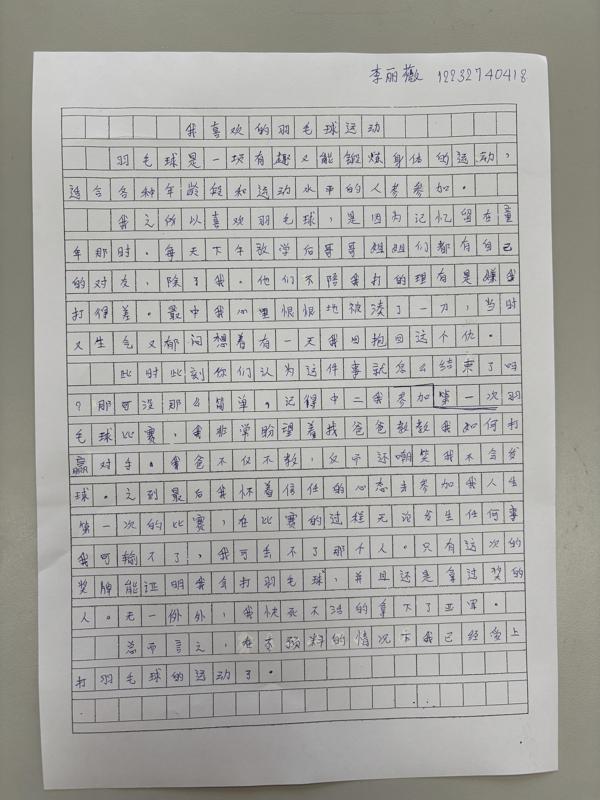 李丽薇 12232740418
我喜欢的羽毛球运动
羽毛球是一项有趣又能锻炼身体的运动,
适合各种年龄段和运动水平的人参加。
我之所以喜欢羽毛球,是因为记忆留在童
年那时。每天下午放学后哥哥姐姐们都有自己
的对友,除了我。他们不陪我打的理有是嫌我
打得差。最中我心里恨恨地被凑了一刀,当时
又生气又郁闷想着有一天我因抱回这个仇。
此时此刻你们认为这件事就怎么结束了吗
?那可没那么简单。记得中二我参加第一次羽
毛球比赛,我非常盼望着找爸爸教教我如何打
赢对手。我爸不仅不教,反而还嘲笑我不会发
球。之到最后我怀着信任的心态去参加我人生
第一次的比赛,在比赛的过程无论发生任何事
我可输不了,我可丢不了那个人。只有这次的
奖牌能证明我会打羽毛球,并且还是拿过奖的
人。无一例外,我快死不活的拿下了亚军。
总而言之,在未预料的情况下我已经爱上
打羽毛球的运动了。